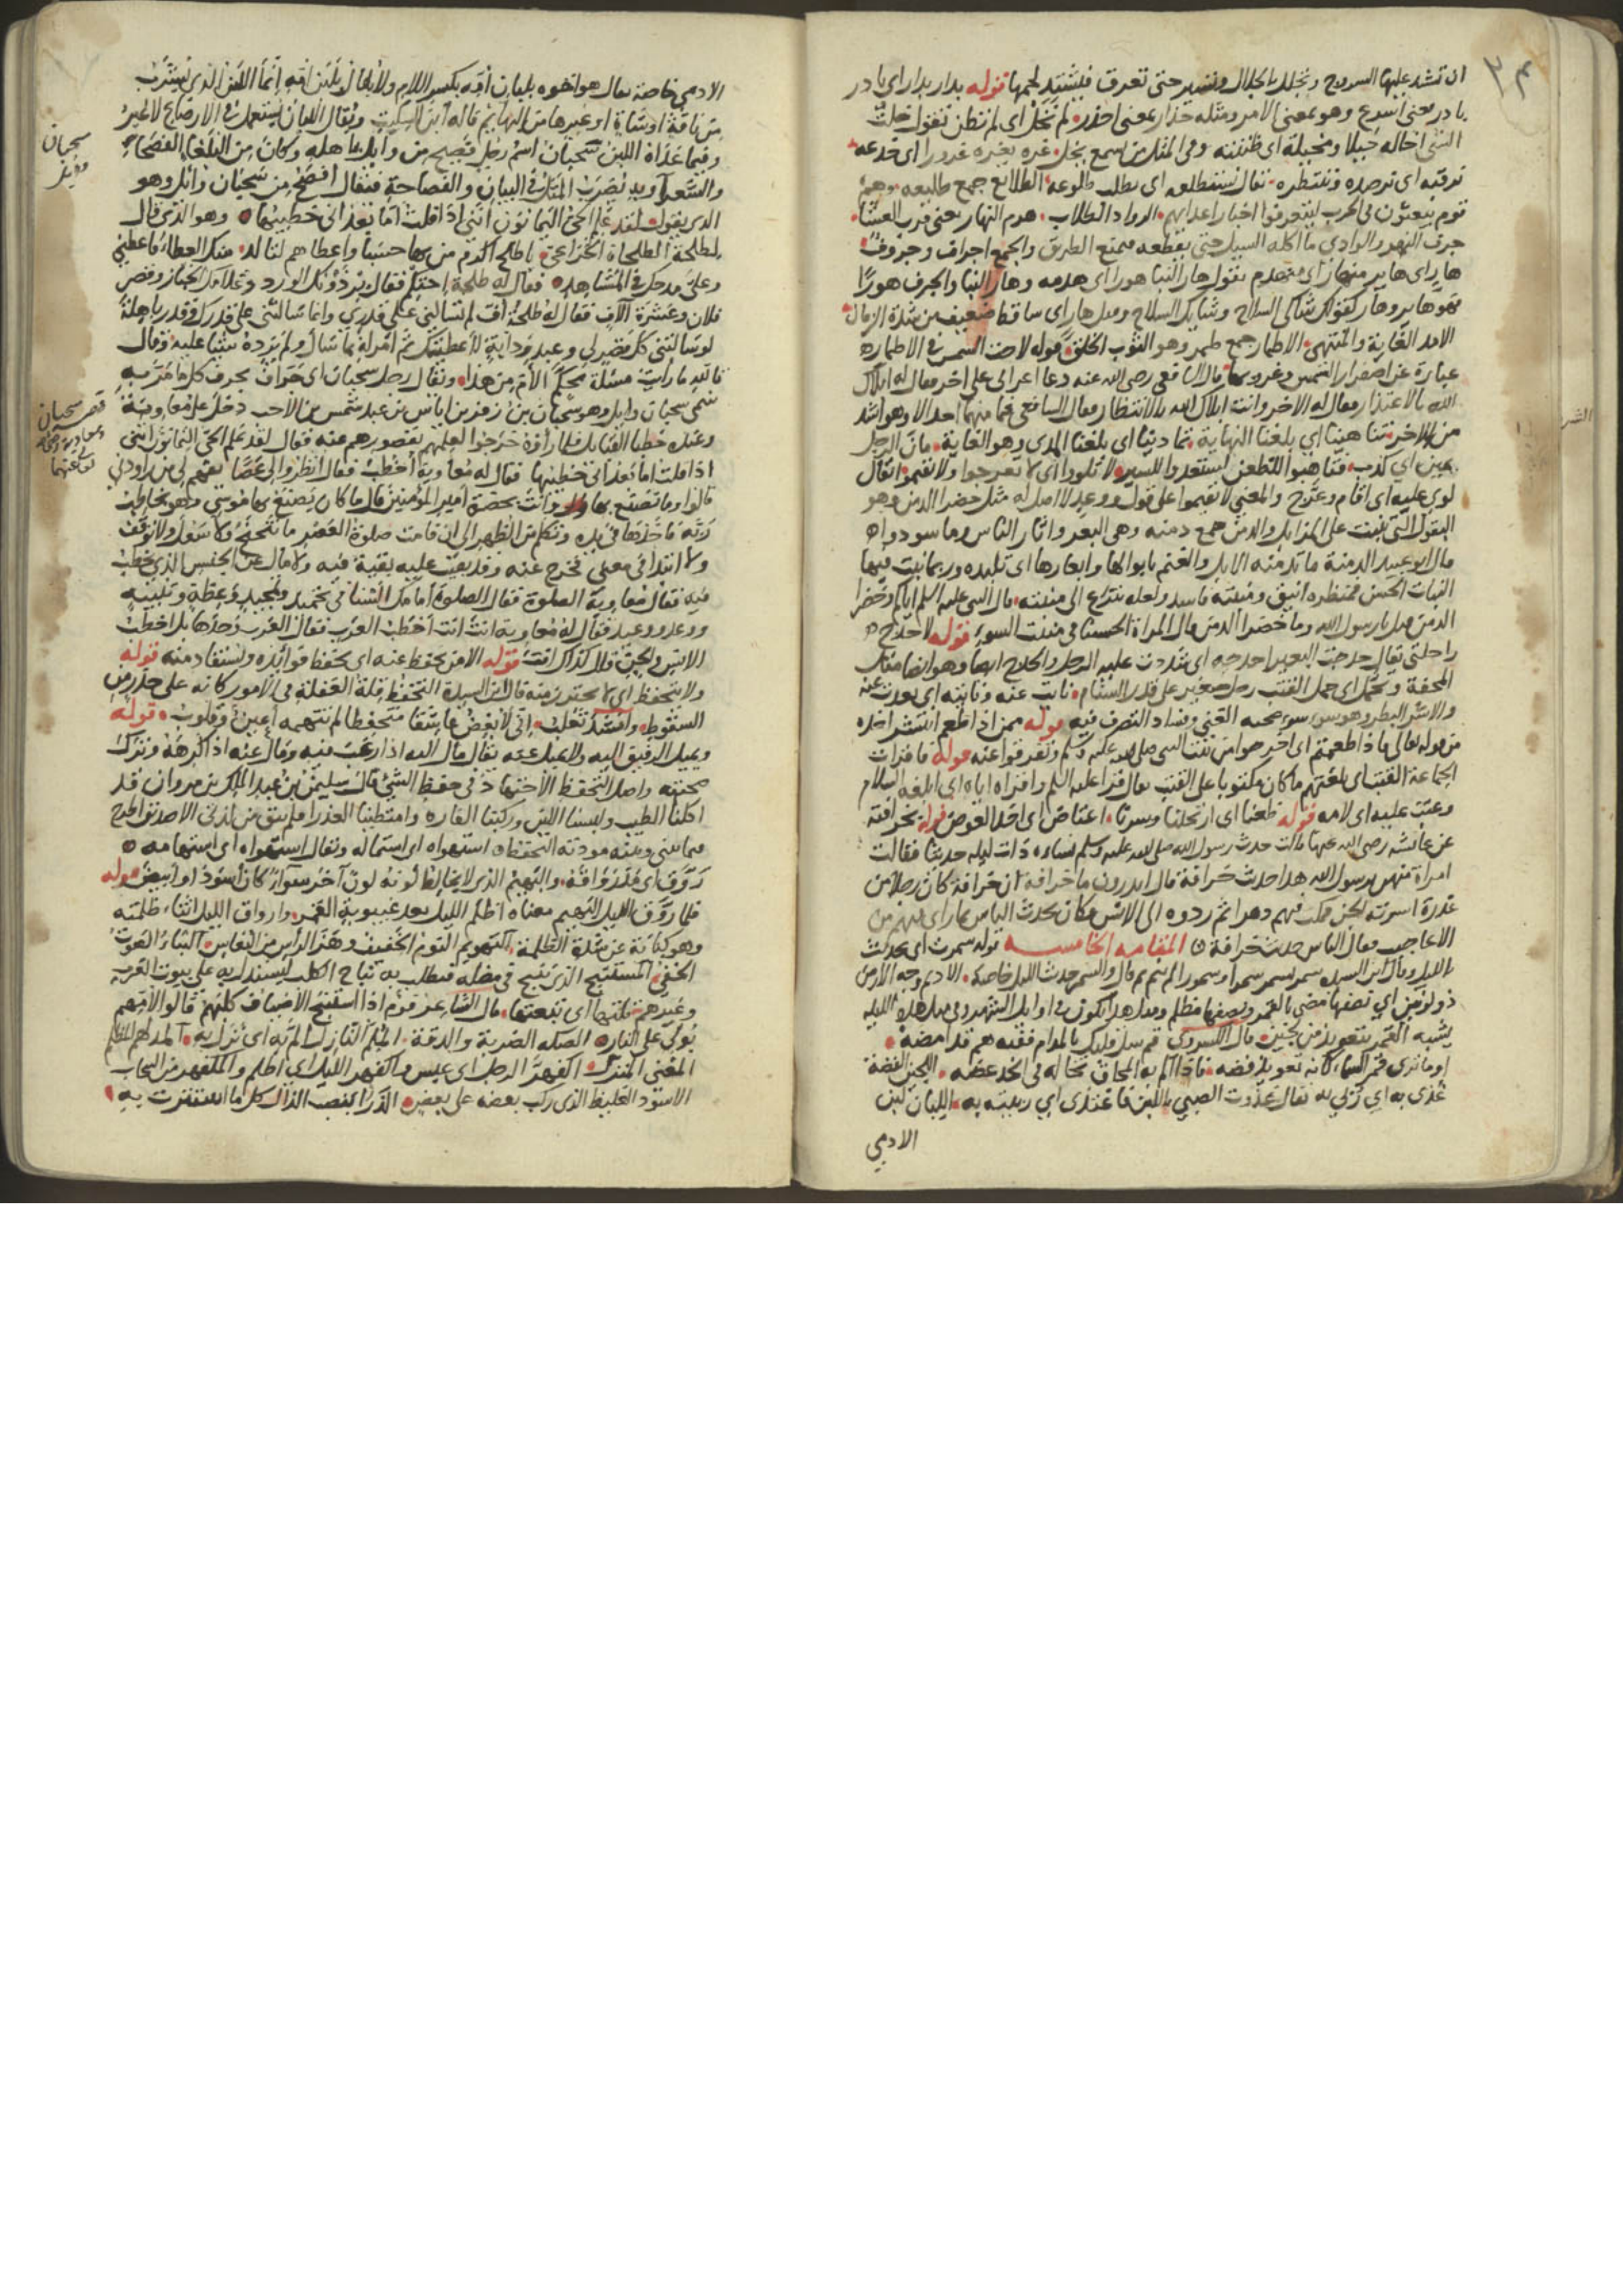 ٣٤
ان تشد عليها السروج وتجلل بالجلال وتسير حتى تعرق فيشتد لحمها قوله بدار بدار اى بادر
بادر بمعنى اسرع وهو بمعنى الامر ومثله حذار بمعنى احذر لم تخل اى لم تظن تقول خلت
الشى اخاله خيلا ومخيلة اى ظننته وفى المثل من يسمع يخل غره يغره غرورا اى خدعه
نرقبه اى نرصده وننتظره نقال نستطلعه اى نطلب طلوعه الطلايع جمع طليعه وهم
قوم يبعثون فى الحرب ليتعرفوا اخبار اعدايهم الرواد الطلاب هرم النهار يعنى قرب العشا
جرف النهر والوادى ما اكله السيل حتى يقطعه فيمنع الطريق والجمع اجراف وجروف
هار اى هاير منهار اى منهدم تقول هار البنا هورا اى هدمه وهار البنا والجرف هورا
فهو هاير وهار كقولك شاكى السلاح وشايك السلاح وقيل هار اى ساقط ضعيف من شدة الزمان
الامد الغاية والمنتهى الاطمار جمع طمر وهو الثوب الخلق قوله لاحت الشمس فى الاطمار
عبارة عن اصفرار الشمس وغروبها قال الشافعى رضى الله عنه دعا اعرابى على اخر فقال له ابلاك
الله بالاعتذار فقال له الاخر وانت ابلاك الله بالانتظار فقال الشافعى فما منهما احد الا وهو اشد
من الاخر تناهينا اى بلغنا النهاية تمادينا اى بلغنا المدى وهو الغاية مان الرجل
يمين اى كذب فتاهبوا للظعن استعدوا للسير لا تلووا اى لا تعرجوا ولا تقيموا يقال
لوى عليه اى اقام وعرج والمعنى لا تقيموا على قول ووعد لا اصل له مثل خضرا الدمن وهو
البقول التى تنبت على المزابل والدمن جمع دمنه وهى البعر واثار الناس وما سودواه
قال ابو عبيد الدمنة ما تدمنه الابل والغنم بابوالها وابعارها اى تلبده وربما نبت فيها
النبات الحسن فمنظره انيق ومنبته فاسد ولعله ينزع الى منبته قال النبى عليه السلم اياكم وخضرا
الدمن قيل يا رسول الله وما خضرا الدمن قال المراة الحسنا فى منبت السوء قوله لاحدج
راحلتى يقال حدجت البعير احدجه اى شددت عليه الرحل والحدج ايضا وهو ايضا مثل
المحفة وتحمل اى حمل القتب رحل صغير على قدر السنام نابت عنه ونابته اى بعدت عنه
والاشر البطر وهو سوء صحبه الغنى وفساد التصرف فيه قوله ممن اذا طعم انتشر اخذه
من قوله تعالى فاذا طعمتم اى اخرجوا من بيت النبى صلى الله عليه وسلم وتفرقوا عنه قوله فاقرات
الجماعة القتب اى بلغتهم ما كان مكتوبا على القتب يقال قرا عليه السلم واقراه اياه اى ابلغه السلام
وعتب عليه اى لامه قوله ظعنا اى ارتحلنا وسرنا اعتاض اى اخذ العوض قوله بخرافته
عن عائشه رضى الله عنها قالت حدث رسول الله صلى الله عليه وسلم نساءه ذات ليله حديثا فقالت
امراة منهن يا رسول الله هذا حديث خرافة قال اتدرون ما خرافة ان خرافة كان رجلا من
عذرة اسرته الجن فمكث فيهم دهرا ثم ردوه الى الانس فكان يحدث الناس بما راى فيهم من
الاعاجيب فقال الناس حديث خرافة المقامه الخامسه قوله سمرت اى تحدثت
بالليل وقال ابن السيده سمر يسمر سمرا وسمورا لم ينم قال والسمر حديث الليل خاصة الاديم وجه الارض
ذو لونين اى نصفها مضى بالقمر ونصفها مظلم ومثل هذا يكون فى اوايل الشهر وفى مثل هذه الليله
يشبه القمر بتعويذ من لجين قال
او ما ترى قمر السماء كانه تعويذ فضه فاذا الم به المحاق تخاله فى الخد عضه اللجين الفضة
غذى به اى ربى به يقال غذوت الصبى باللبن فاغتذى اى ربيته به اللبان لبن
الادمى
الادمى خاصة يقال هو اخوه بلبان امه بكسر اللام ولا يقال بلبن امه انما اللبن الذى يشرب
من ناقة او شاة او غيرها من البهايم قاله ابن السكيت ويقال اللبان يستعمل فى الارضاع لا غير
وفيما عداه اللبن سحبان اسم رجل فصيح من وايل باهله وكان من البلغا الفصحا
والشعرآ وبه يضرب المثل فى البيان والفصاحة فيقال افصح من سحبان وائل وهو
الذى يقول لقد علم الحى اليمانون اننى اذا قلت اما بعد انى خطيبها وهو الذى قال
لطلحة الطلحات الخزاعى يا طلح اكرم من بها حسبا واعطاهم لتالد منك العطاء فاعطنى
وعلى مدحك فى المشاهد فقال له طلحة احتكم فقال برذونك الورد وغلامك الخباز وقصر
فلان وعشرة آلاف فقال له طلحة اف لم تسالنى على قدرى وانما سالتنى على قدرك وقدر باهلة
لو سالتنى كل قصر لى وعبد ودابة لاعطيتك ثم امر له بما سال ولم يزده شيئا عليه وقال
تالله ما رايت مسئلة محكم الام من هذا ويقال رجل سحبان اى جراف يجرف كل ما مر به
سمى سحبان وايل وهو سحبان بن زفر بن اياس بن عبد شمس بن الاحب دخل على معاوية
وعنده خطبا القبايل فلما راوه خرجوا لعلمهم بقصورهم عنه فقال لقد علم الحى اليمانون اننى
اذا قلت اما بعد انى خطيبها فقال له معاوية اخطب فقال انظروا لى عصا تقيم لى من راودى
قالوا وما تصنع بها وانت بحضرة امير المومنين قال ما كان يصنع بها موسى وهو يخاطب
ربه فاخذها فى يده وتكلم من الظهر الى ان قامت صلوة العصر ما تنحنح ولا سعل ولا توقف
ولا ابتدا فى معنى فخرج عنه وقد بقيت عليه بقية فيه ولا مال عن الجنس الذى يخطب
فيه فقال معاوية الصلوة فقال الصلوة امامك السنا فى تحميد وتمجيد وعظة وتنبيه
ووعد ووعيد فقال له معاوية انت اخطب العرب فقال العرب وحدها بل اخطب
الانس والجن قال كذاك انت قوله الا من تحفظ عنه اى تحفظ فوائده وتستفاد منه قوله
ولا يتحفظ اى لا يحترز منه قال ابن السيدة التحفظ قلة الغفلة فى الامور كانه على حذر من
السقوط وانشد ثعلب انى لابغض عاشقا متحفظا لم تتهمه اعين وقلوب قوله
ويميل الرفيق اليه ولا يميل عنه يقال مال اليه اذا رغب فيه ومال عنه اذا كرهه وترك
صحبته واصل التحفظ الاجتهاد فى حفظ الشئ قال سليمن بن عبد الملك بن مروان قد
اكلنا الطيب ولبسنا اللين وركبنا الفاره وامتطينا العذرا فلم يبق من لذتى الا صديق اطرح
فيما بينى وبينه مودته التحفظ استهواه اى استماله ويقال استهواه اى استهامه
روق اى مد رواقه والبهيم الذى لا يخالط لونه لون آخر سوآء كان اسود او ابيض قوله
فلما روق الليل البهيم معناه اظلم الليل بعد غيبوبة القمر وارواق الليل اثناء ظلمته
وهو كناية عن شدة الظلمة التهويم النوم الخفيف وهز الراس من النعاس النباة الصوت
الخفى المستنبح الذى ينبح فى مضله فيطلب به نباح الكلب ليستدل به على بيوت العرب
وغيرهم تلتها اى تبعتها قال الشاعر قوم اذا استنبح الاضياف كلبهم قالوا لامهم
بولى على النار الصكه الضربة والدقة الملم النازل الم به اى نزل به المدلهم المظلم
المغنى المنزل اكفهر الرجل اى عبس واكفهر الليل اى اظلم والمكفهر من السحاب
الاسود الغليظ الذى ركب بعضه على بعض الذرا بنصب الذال كل ما استترت به
سحبان
وايل
قصه سحبان